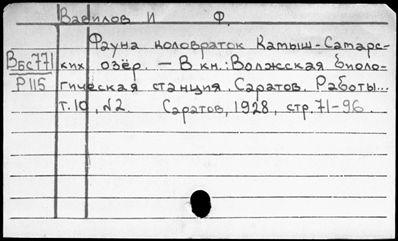 Вавилов И Ф.
Фауна коловраток Камыш-Самарс-
Вбс771 ких озёр. — В кн.: Волжская биоло-
Р115 гическая станция. Саратов. Работы...
т.10, №2. Саратов, 1928, стр. 71-96.